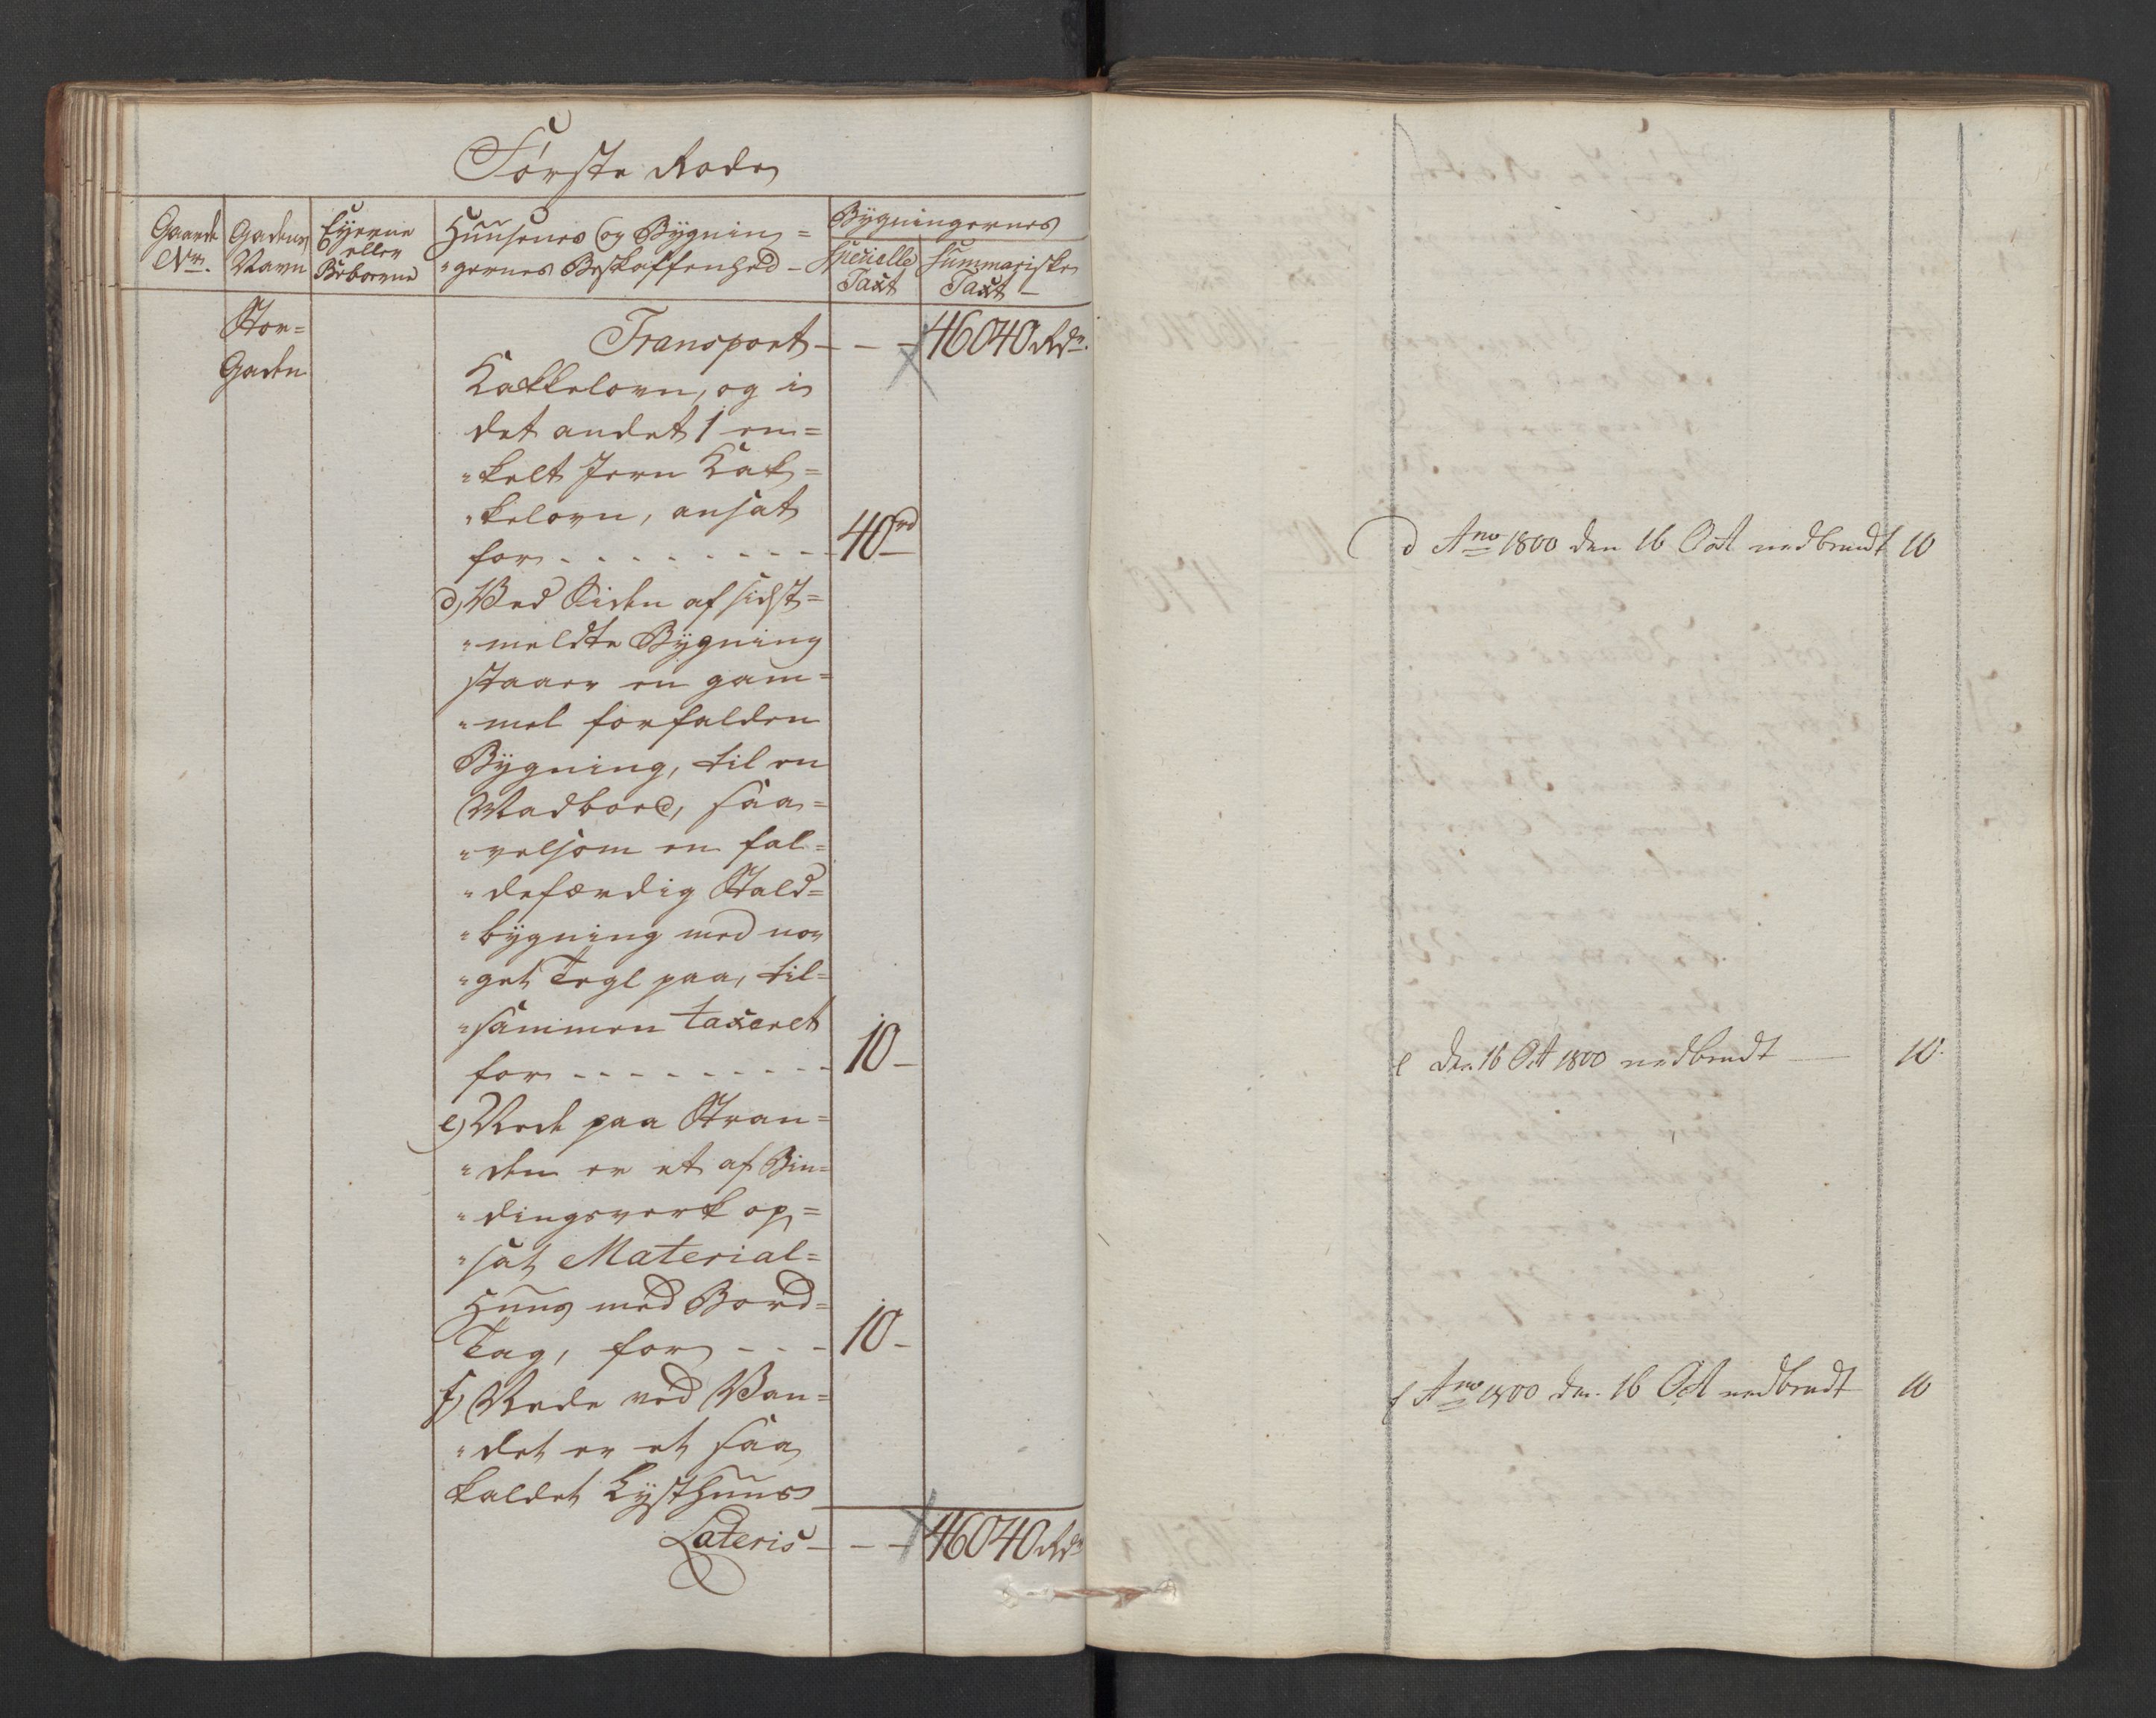 Første Rode
Gaarde
No.
Gadens
Navn
Eyerne
eller
Beboerne
Huusenes og Bygnin=
"gernes Beskaffenhed -
Bÿgningernes
Specielle
Taxt
Summariske
Taxt -
Stor=
Gaden
Transport - - - 46040 Rdr.
Kakkelovn, og i
det andet 1 en=
"kelt Jern Kak=
"kelovn, ansat
for - - - - - - - - - 40 rd
d) Ved Siden af sidst=
"meldte Bÿgning
staaer en gam=
"mel forfalden
Bÿgning, til en
Madbod, saa=
"velsom en fal=
"defærdig Stald=
"bÿgning med no=
"get Tegl paa, til=
"sammen taxeret
for - - - - - - - - - 10 -
e) Nede paa Stran=
"den er et af Bin=
"dingsverk op=
"sat Material=
Huus med Bord=
Tag, for - - - 10 -
f) Nede ved Van=
"det er et saa
kaldet Lÿsthuus
Lateris - - - 46040 Rdr
d Ano 1800 den 16 Oct nedbrendt 10
e den 16 Oct 1800 nedbrendt — 10.
f Ano 1800 den 16 Oct nedbrendt 10